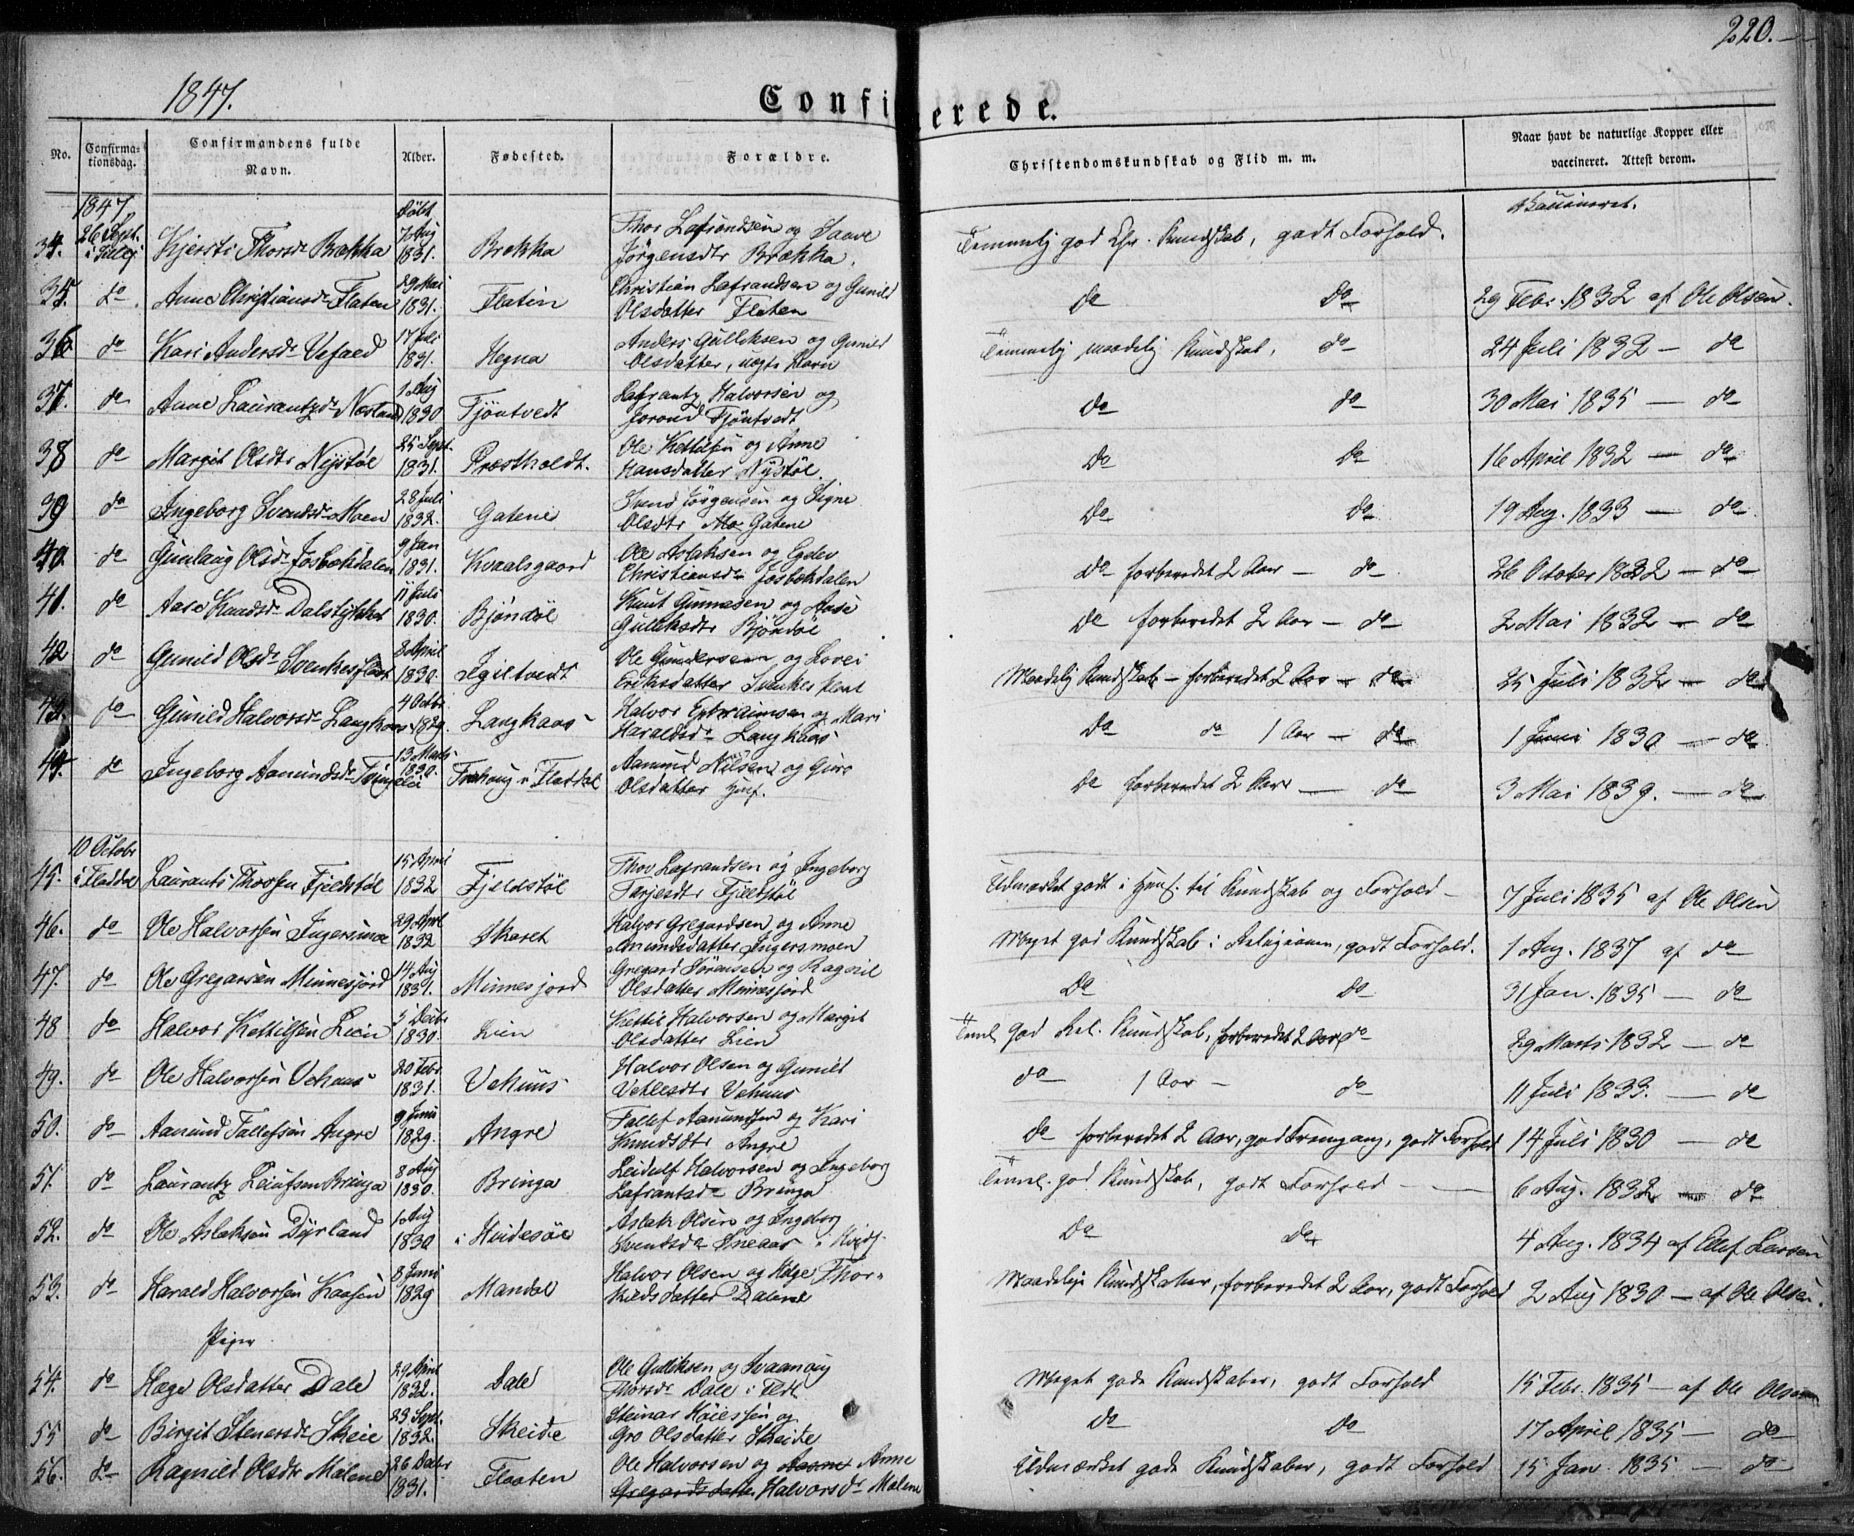 220.
1847.
Confirmerede.
No. Confirma-tionsdag. Confirmandens fulde Navn. Alder. Fødested. Forældre. Christendomskundskab og Flid m. m. Naar havt de naturlige Kopper eller vaccineret. Attest derom.
1847 Døbt Vaccineret.
34. 26 Sept. 7 Aug 1831. Brekka Thor Lafrandsen og Saave Jörgensdtr Brækka. Temmelig god Chr. Kundskab, godt Forhold.
Kjersti Thorsdr Brækka
35. do Anne Christiansdr Flaten 29 Mai 1831. Flatin Christian Lafrandsen og Gunild Olsdatter Flaten do do 29 Febr. 1832 af Ole Olsen.
36 do Kari Andersdr 17 Juli 1831. Hegna Anders Gulliksen og Gunild Olsdatter, uægte Barn Temmelig maadelig Kundskab, do 24 Juli 1832 - do
37. do Aane Laurantzdr Næsland 1 Aug 1830 Fjöntvedt Lafrantz Halvorsen og Jorond Fjöntvedt do do 30 Mai 1835 - do
38 do Margit Olsdtr Nystöl 25 Sept. 1831. Præstholdt. Ole Kettilsen og Anne Hansdatter Nystöl. Do Do 16 April 1832 - do
39 do Ingeborg Svendsdr Moen 28 Juli 1832. Gatene Svend Jörgensen og Signe Olsdtr Mo Gatene Do do 19 Aug. 1833 - do
40. do Gunlaug Olsdr Josbækdalen 9 Jan 1831. Kvaalsgaard Ole Aslaksen og Christiansdr Josbekdalen Do forberedet 2 Aar - do 26 October 1832 - do
41. do Aase Knudsdr 11 Juli 1830. Bjöndöl Knut Gunnesen og Aase Gulleksdtr Bjöndöl De forberedet 2 Aar - do 2 Mai 1832 - do
42 do Gunild Olsdr Svenkesflaat 3 April 1830. Ole Gundersen og Lovei Eriksdatter Maadelig Kundskab - forberedet 2 Aar - do 25 Juli 1832 - do
43. do Gunild Halvorsdr Langkaas 4 Octbr. 1829. Langkaas Halvor Ephraimsen og Mari Haraldsdr Langkaas Do do 1 Aar - do 1 Juni 1830 - do
44. do Ingeborg Aamundsdr 13 Marts 1830. i Fladdal Aamund Nilsen og Guro Olsdatter De forberedet 2 Aar - do 3 Mai 1839. - do
45. 10 Octobr i Fladdal Laurants Thorsen Fjeldstöl 15 April 1832 Fjeldstöl Thov Lafrandsen og Ingeborg Tarjesdtr Fjeldstöl Udmærket godt i Kundskab og Forhold - 7 Juli 1835 af Ole Olsen
46. do Ole Halvorsen Ingersmoe 29 April 1832 Skaret Halvor Gregardsen og Anne Amundsdatter Ingersmoen Meget god Kundskab i Religionen, godt Forhold. 1 Aug. 1837 af do
47. do Ole Gregarsen Minnesjord 14 Aug 1831. Minnesjord Gregard Sörensen og Ragnil Olsdatter Minnesjord Do Do 31 Jan. 1835 - do
48 do Halvor Kettilsen Lien 5 Decbr 1830. Lien Kettil Halvorsen og Margit Olsdatter Lien god Rel. Kundskab, forberedet 2 Aar do 29 Marts 1832 - do
49. do Ole Halvorsen Vehuus 20 Febr 1831. Vehuus Halvor Olsen og Gunild Vetlesdtr Vehuus do 1 Aar - do 11 Juli 1833. - do
50. do Aamund Tallefsen Angre 9 Juni 1829. Angre Tallef Aamundsen og Kari Angre do forberedet 2 Aar, god Fremgang, godt Forhold 14 Juli 1830 - do
51. do Laurantz Leiufsen Bringa 8 Aug 1830. Bringa Leidulf Halvorsen og Ingeborg Lafrantsdr Bringa god Kundskab, godt Forhold 6 Aug. 1832 do
52. do Ole Aslaksen Dyrland 1 Aug 1830 i Aslak Olsen og Ingeborg Svendsdr Do Do 4 Aug. 1834 af Larsen
53. do Harald Halvorsen Kaasen 8 Juni 1829 Mandal Halvor Olsen og Hæge Thorkildsdatter Dalene Maadelige Kundskaber, forberedet 2 Aar, godt Forhold 2 Aug 1830 - af Ole Olsen.
Piger
54. do Hæge Olsdatter Dale 29 April 1832. Dale Ole Gulliksen og Svaanaug Thorsdr Dale i Meget gode Kundskaber, godt Forhold 15 Febr. 1835 - af Ole Olsen
55 do Birgit Stenersdr Skeie 23 Sept. 1832. Skeide Steinar og Gro Olsdatter Skeide Do Do 17 April 1835 - do
56. do Ragnild Olsdtr Malene 26 Decbr 1831. Flaaten Ole Halvorsen og Anne Halvorsdr Malene Udmærket gode Kundskaber, godt Forhold 15 Jan. 1835 - do